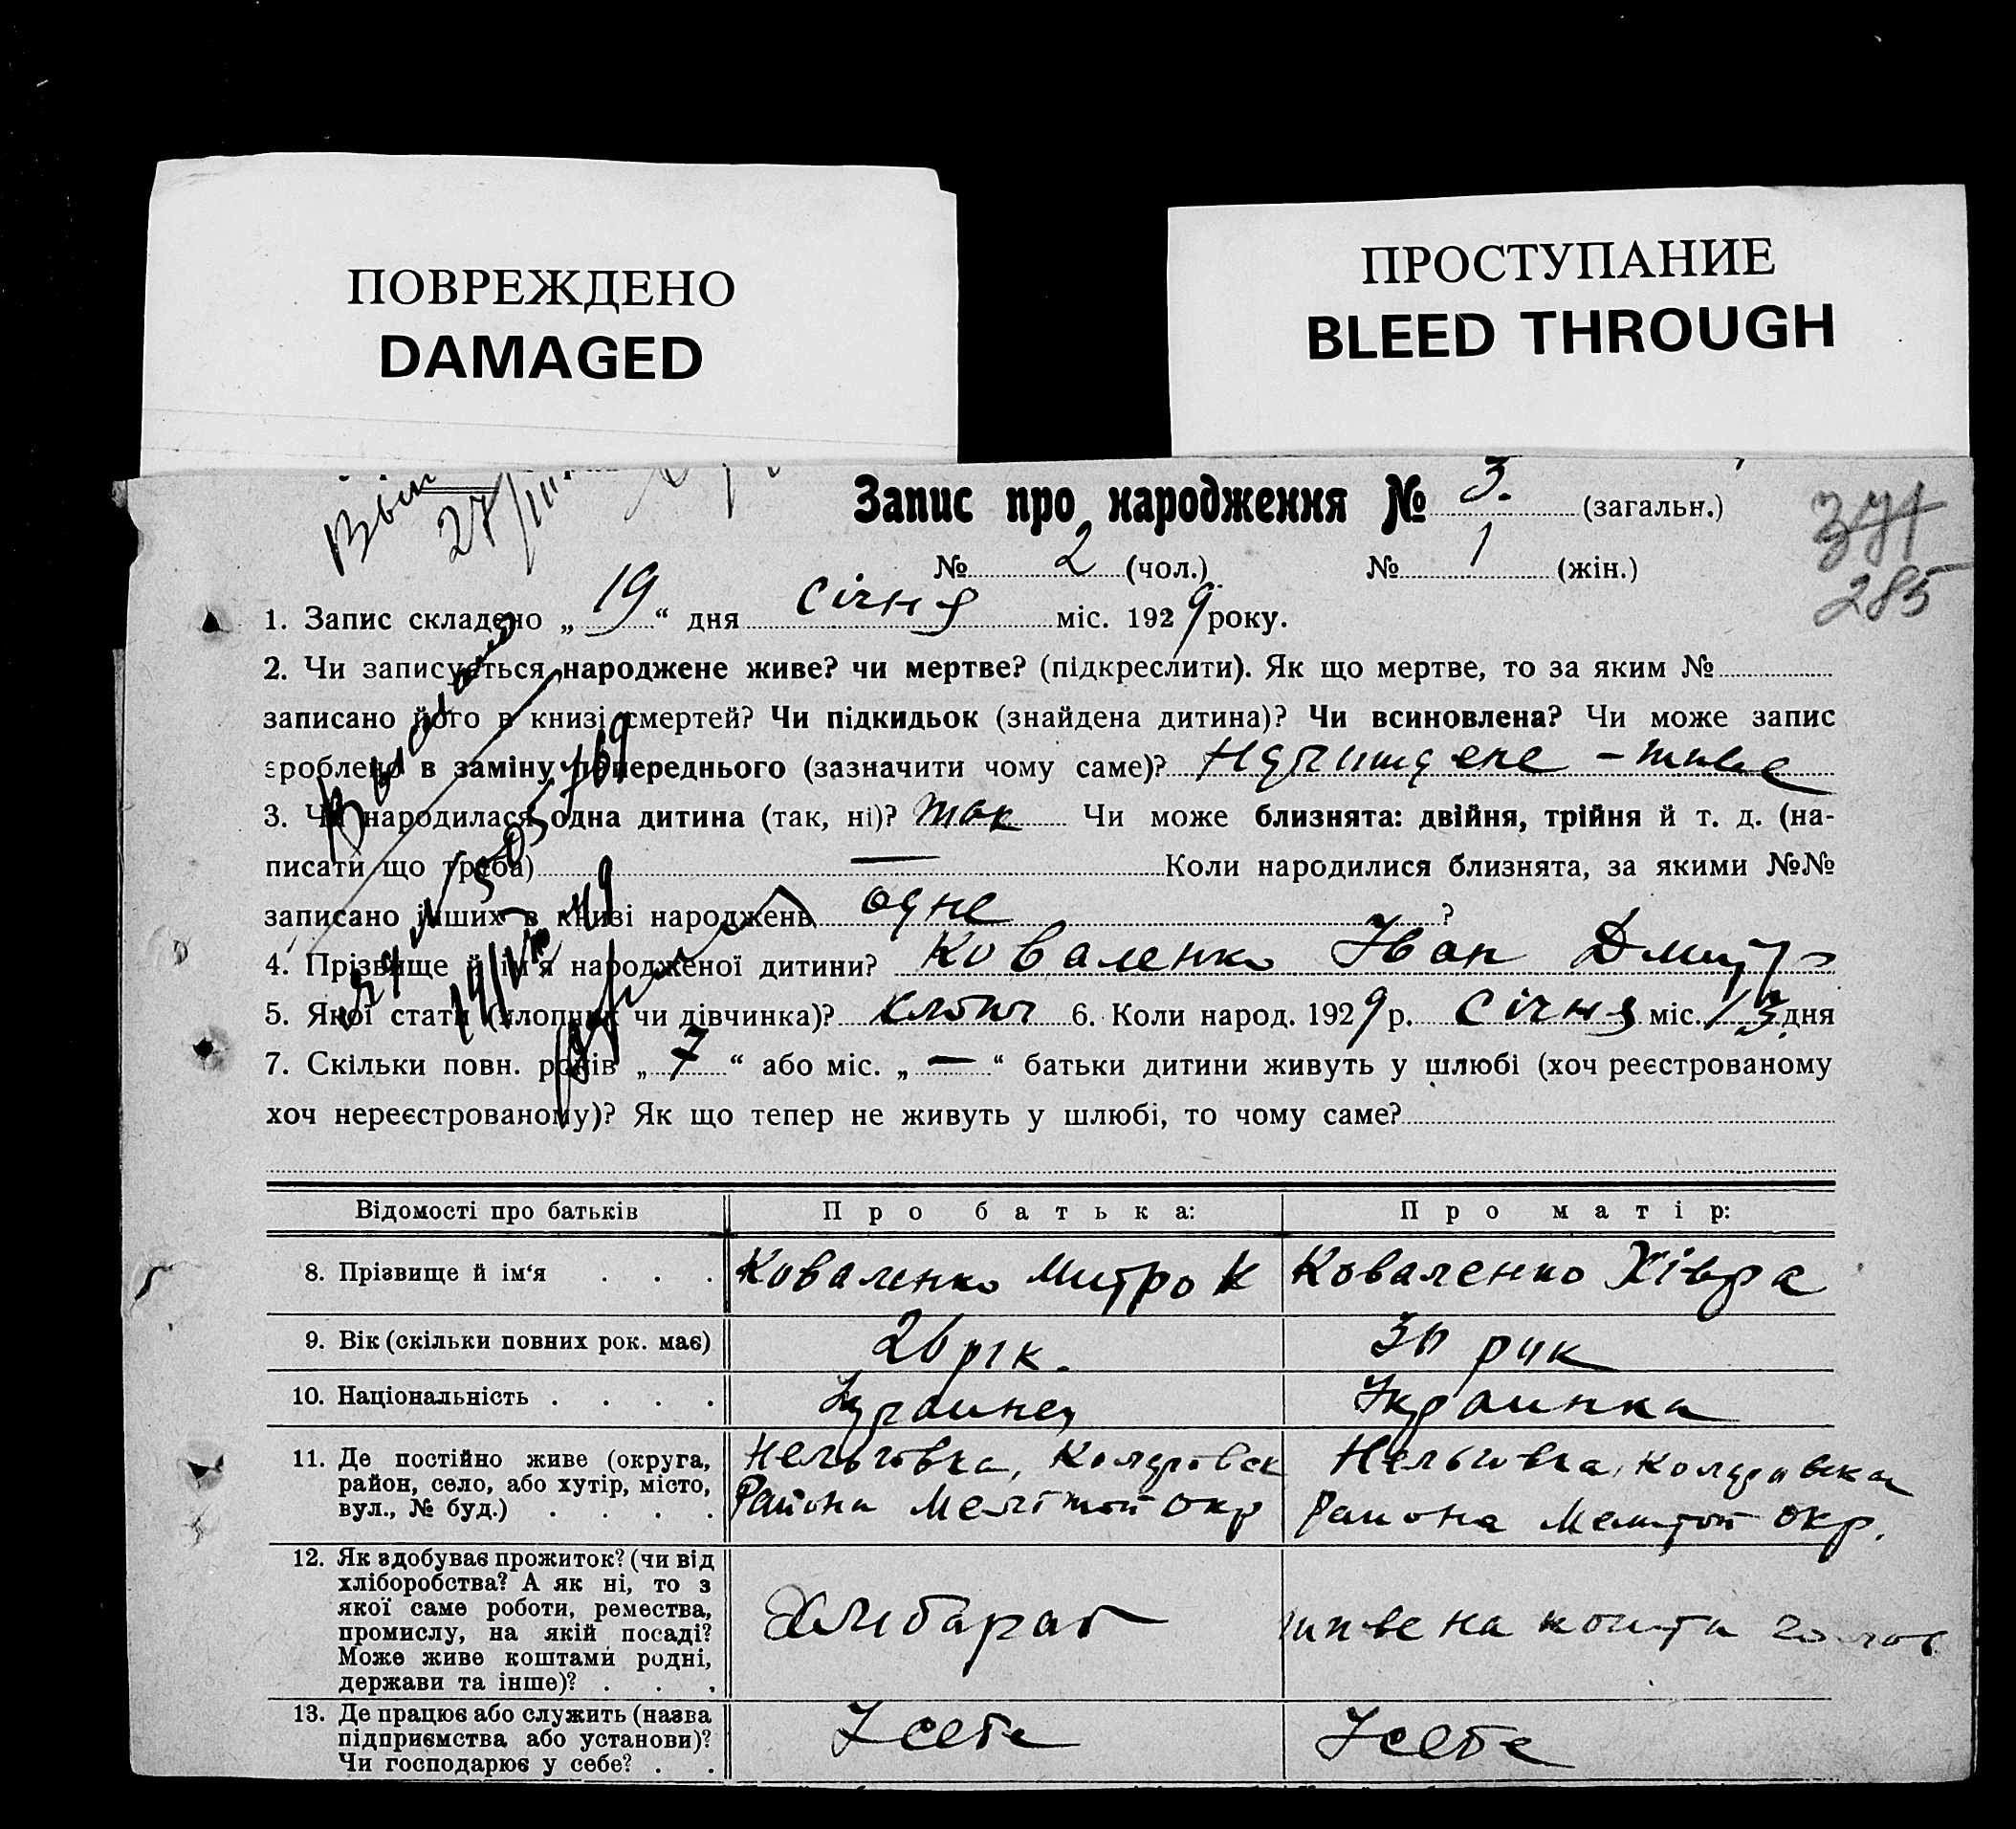 ПОВРЕЖДЕНО
DAMAGED
ПРОСТУПАНИЕ
BLEED THROUGH
27/III
Запис про народження № 3. (загальн.)
371
285
№ 2 (чол.) № 1 (жін.)
1. Запис складено „19“ дня січня міс. 1929 року.
2. Чи записується народжене живе? чи мертве? (підкреслити). Як що мертве, то за яким №
записано його в книзі смертей? Чи підкидьок (знайдена дитина)? Чи всиновлена? Чи може запис
зроблено в заміну попереднього (зазначити чому саме)? – живе
3. Чи народилася одна дитина (так, ні)? так Чи може близнята: двійня, трійня й т. д. (на-
писати що треба) — Коли народилися близнята, за якими №№
записано інших в книзі народжень одне ?
4. Прізвище й ім'я народженої дитини? Коваленко Іван Дмитр
5. Якої стати (хлопчик чи дівчинка)? хлопч 6. Коли народ. 1929 р. січня міс. 13 дня
7. Скільки повн. років „7“ або міс. „—“ батьки дитини живуть у шлюбі (хоч реєстрованому
хоч нереєстрованому)? Як що тепер не живуть у шлюбі, то чому саме?
Відомості про батьків Про батька: Про матір:
8. Прізвище й ім'я . . . Коваленко Митро К Коваленко Хівра
9. Вік (скільки повних рок. має) 26 рік. 30 рик
10. Національність . . . . Украинец Украинка
11. Де постійно живе (округа,
район, село, або хутір, місто,
вул., № буд.) . . . .
Нельговка, Коларовск
Района Меліт окр
Нельговка, Коларовска
Района Мелит окр.
12. Як здобуває прожиток? (чи від
хліборобства? А як ні, то з
якої саме роботи, ремества,
промислу, на якій посаді?
Може живе коштами родні,
держави та інше)? . . .
Хлибараб
живе на кошти
13. Де працює або служить (назва
підприємства або установи)?
Чи господарює у себе? . .
У себе
У себе